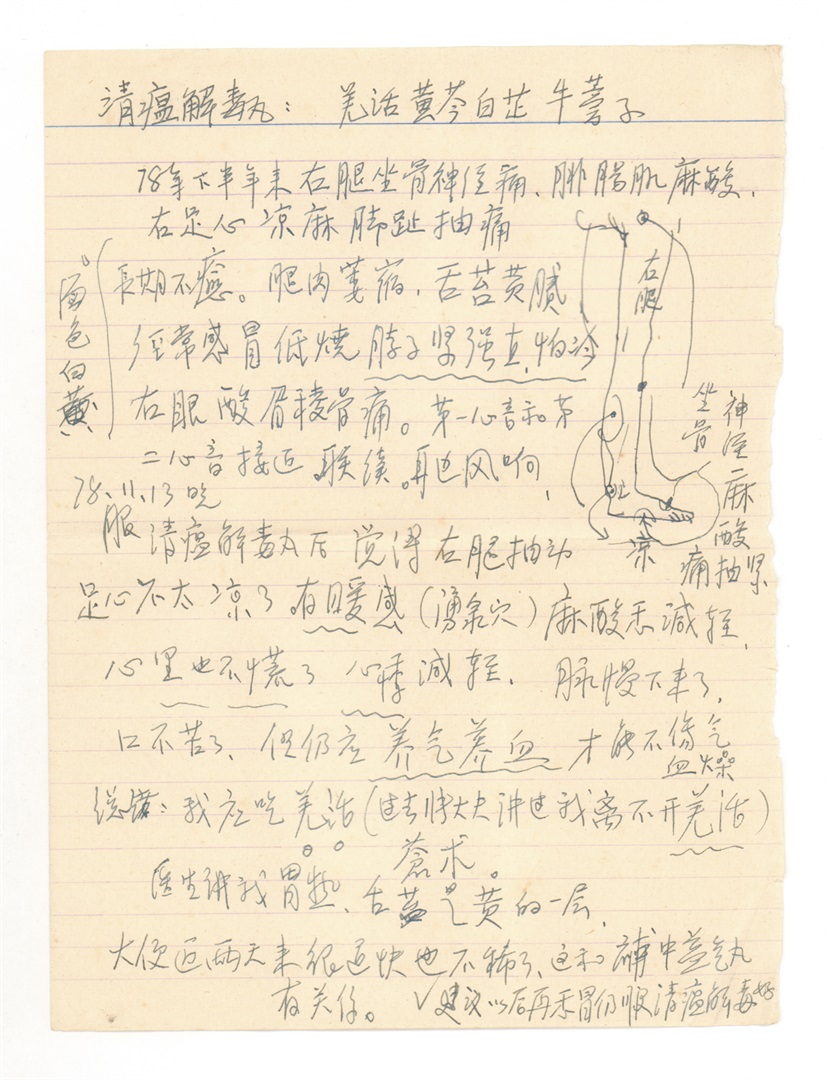 清瘟解毒丸：羌活黄芩白芷牛蒡子
78年下半年来右腿坐骨神经痛、腓肠肌麻酸，
右足心凉麻脚趾抽痛
長期不癒。腿肉萎缩，舌苔黄腻
面色白黄
经常感冒低烧脖子紧强直，怕冷
右眼酸眉棱骨痛。第一心音和第
二心音接近联续。耳边风响，
78.11.13晚
服清瘟解毒丸后觉得右腿抽动
足心不太凉了有暖感（湧泉穴）麻酸痛减轻，
心里也不慌了心悸减轻，脉慢下来了，
口不苦了，但仍应养气养血才能不伤气
血燥
我应吃羌活（过去大夫讲过我离不开羌活）
蒼术。
医生讲我胃热、舌苔是黄的一层，
大便近两天来很通快也不稀了，这和補中益气丸
有关係。
√建议以后再感冒仍服清瘟解毒好
右腿
坐骨
神经麻酸
痛抽紧
凉